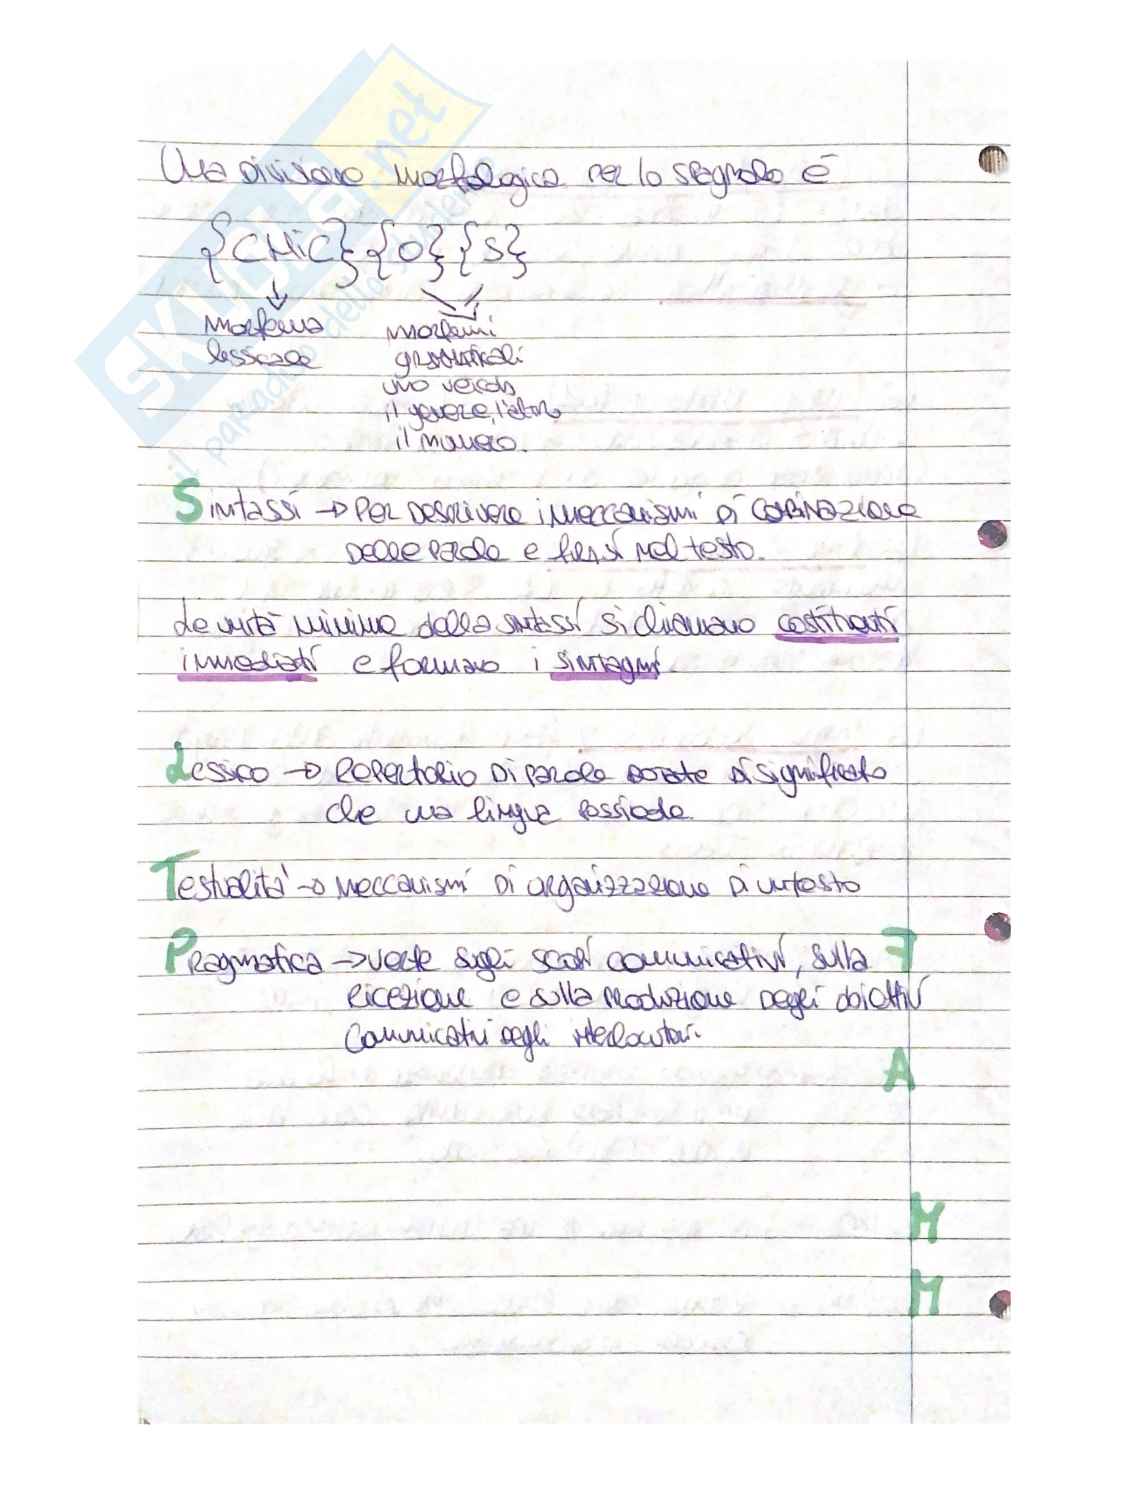 Una divisione morfologica per lo spagnolo è
{CHIC} {O} {S}
morfema
lessicale
morfemi
grammaticali
uno veicola
il genere, l'altro
il numero.
Sintassi → Per descrivere i meccanismi di combinazione
delle parole e frasi nel testo.
Le unità minime della sintassi si chiamano costituenti
immediati e formano i sintagmi.
Lessico → Repertorio di parole dotate di significato
che una lingua possiede.
Testualità → Meccanismi di organizzazione di un testo
Pragmatica → verte sugli scopi comunicativi, sulla
ricezione e sulla produzione degli obiettivi
comunicativi degli interlocutori.
F
A
M
M
SKUOLA.net
il paradiso dello studente